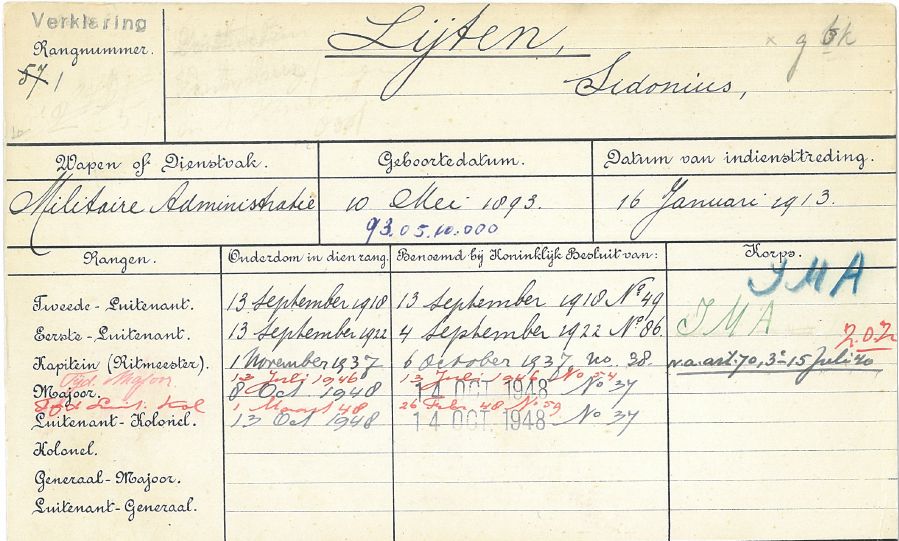 Verklaring
Rangnummer.
57 1
Lijten,
Sidonius,
Wapen of Dienstvak. Geboortedatum. Datum van indiensttreding.
Militaire Administratie 10 Mei 1893. 16 Januari 1913.
93.05.10.000
Rangen. Ouderdom in dien rang. Benoemd bij Koninklijk Besluit van: Korps.
I M A
Tweede-Luitenant. 13 September 1918 13 September 1918 No 49
Eerste-Luitenant. 13 September 1922 4 September 1922 No 86. I M A
Kapitein (Ritmeester). 1 November 1937 6 October 1937 no. 38. v.a. art. 70, 3e 15 Juli 40
Tijd. Majoor 12 Juli 1946 12 Juli 1946 No 54
Majoor. 8 Oct. 1948 14 OCT. 1948 No 37
Tijd. Luit. Kol 1 Maart 48 26 Febr 48 No 59
Luitenant-Kolonel. 13 Oct 1948 14 OCT. 1948 No 37
Kolonel.
Generaal-Majoor.
Luitenant-Generaal.